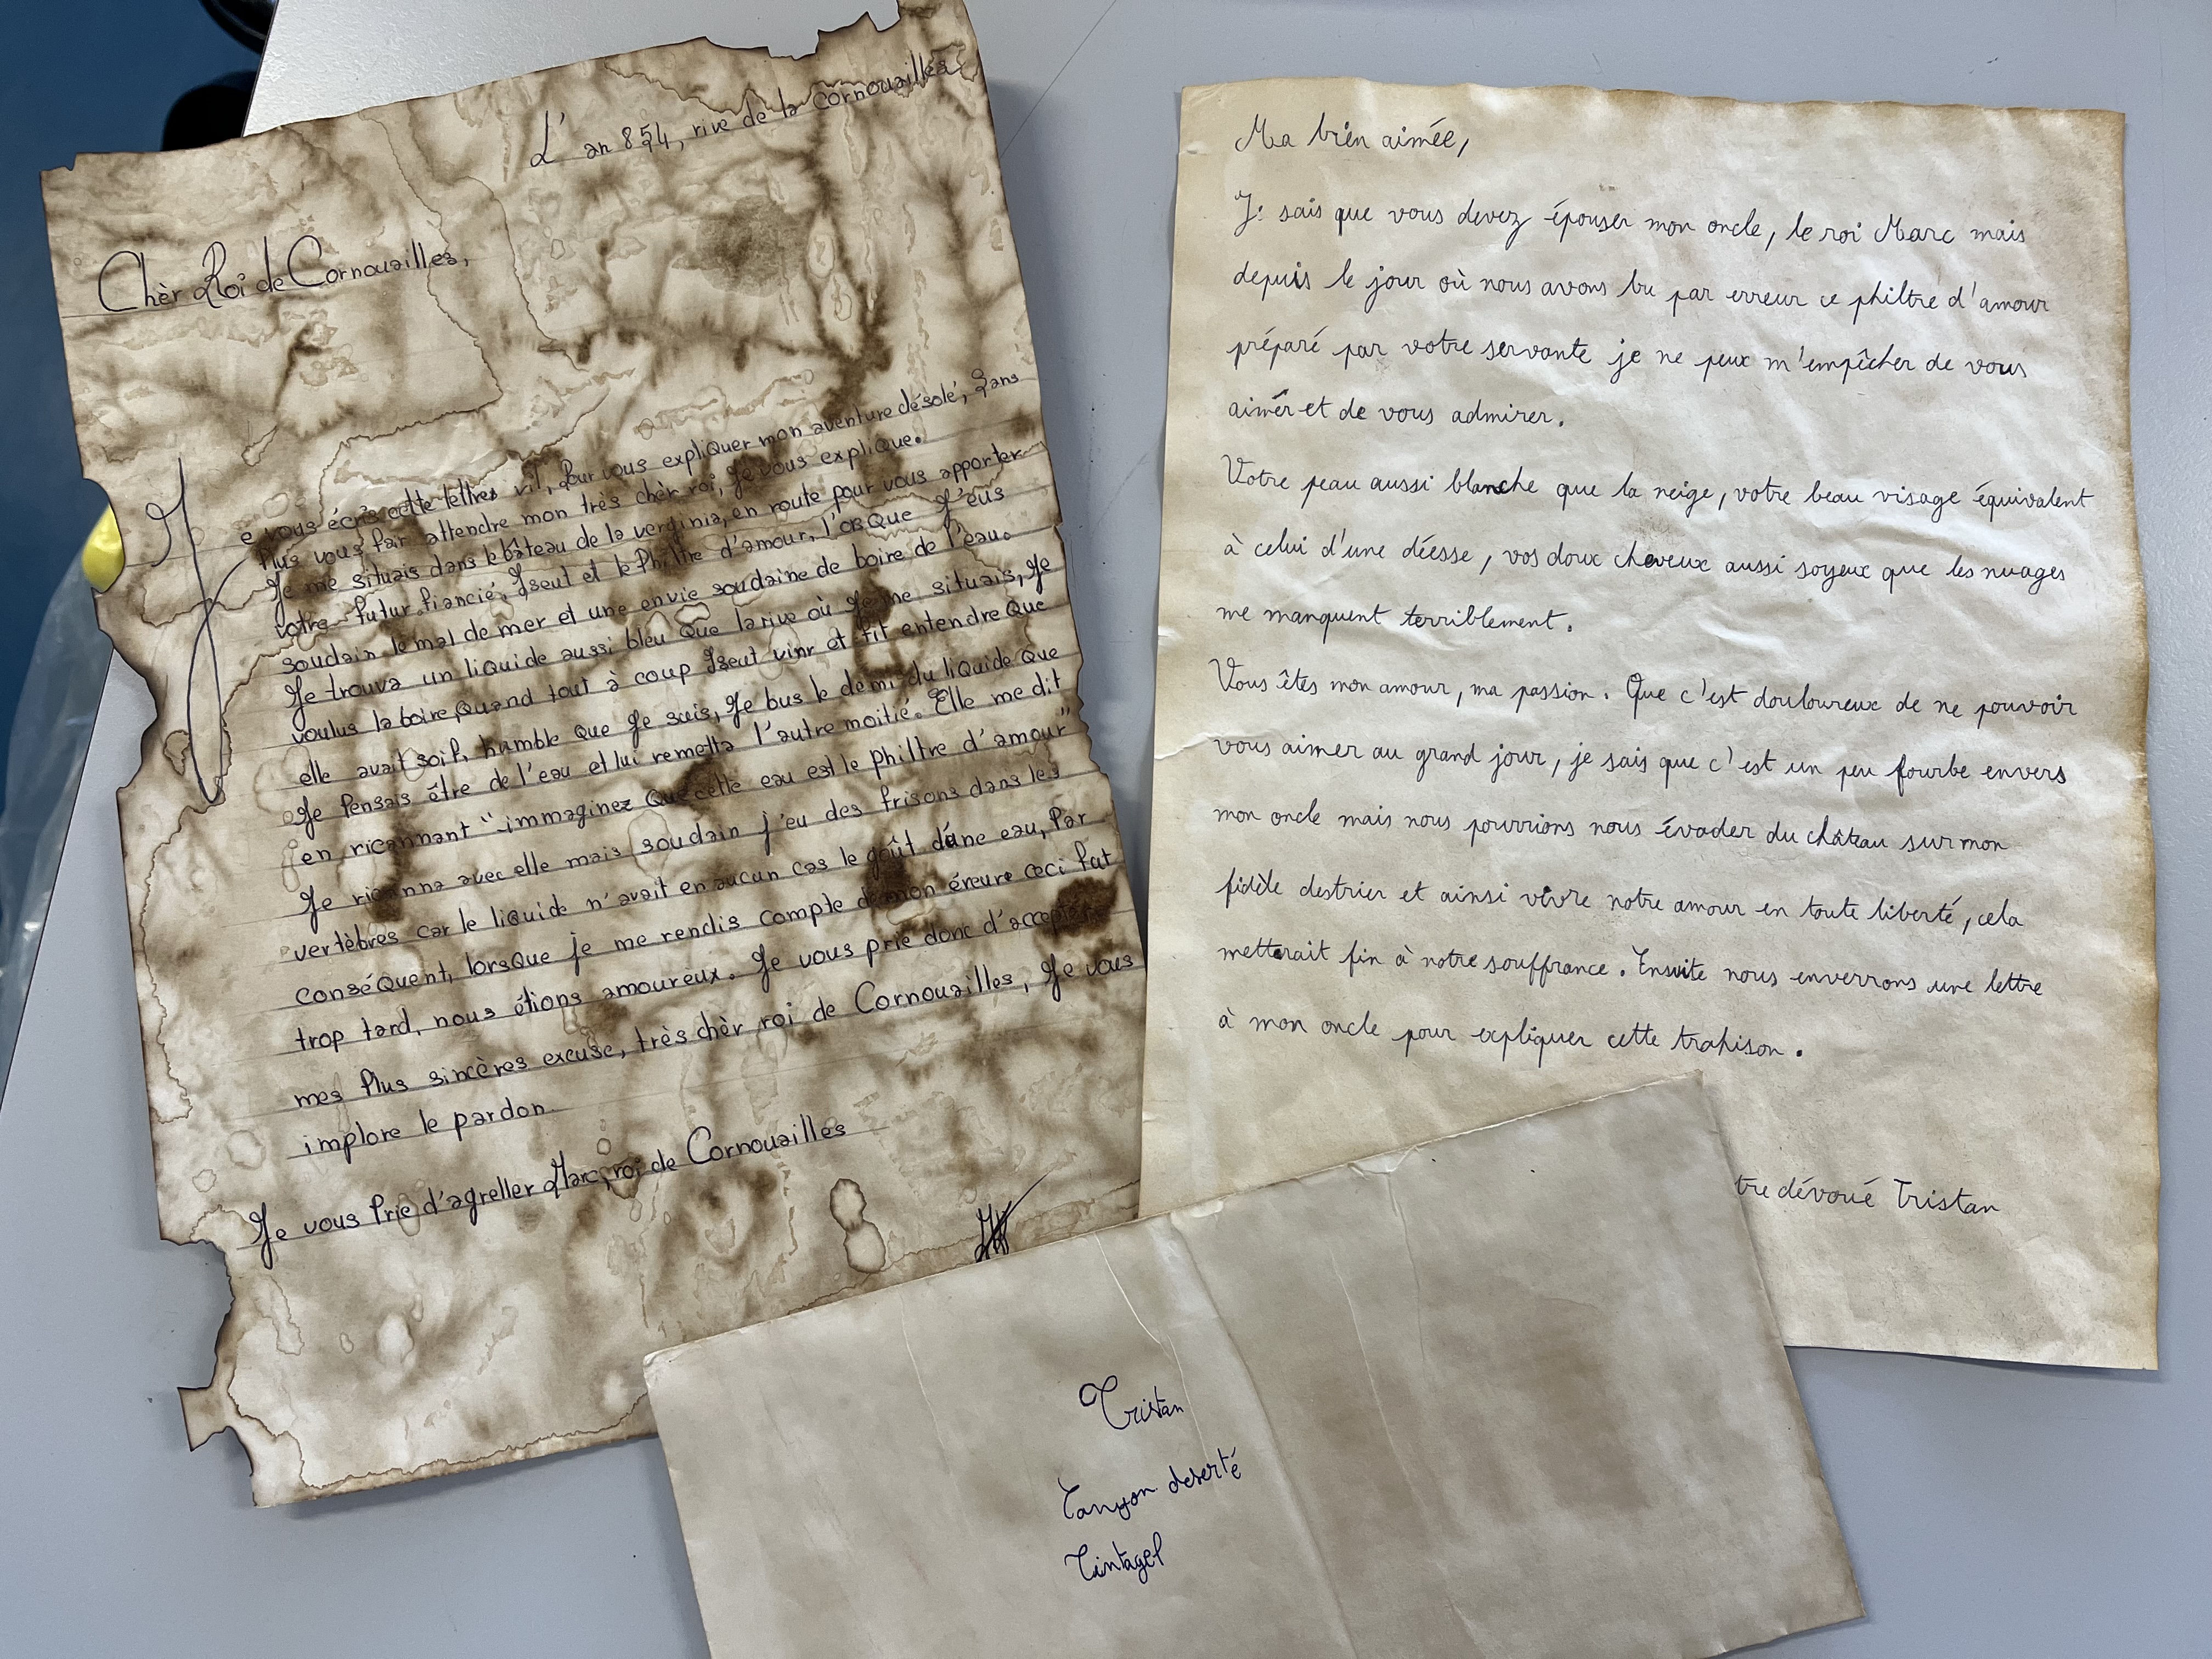 L'an 854, rive de la Cornouailles
Chèr Roi de Cornouailles,
Je vous écris cette lettres vil, Pour vous expliquer mon aventure désolé, Sans
Plus vous fair attendre mon très chèr roi, Je vous explique.
Je me situais dans le bâteau de la verginia, en route pour vous apporter
votre futur fiancié, Iseut et le Philtre d'amour, l'orsQue J'eus
soudain le mal de mer et une envie soudaine de boire de l'eau.
Je trouva un liquide aussi bleu Que la rive où Je me situais, Je
voulus la boire, Quand tout à coup Iseut vinr et fit entendre Que
elle avait soif, humble Que Je suis, Je bus le demi du liQuide Que
Je Pensais être de l'eau et lui remetta l'autre moitié. Elle me dit
en ricannant "immaginez Que cette eau est le Philtre d'amour"
Je ricanna avec elle mais soudain j'eu des frisons dans les
vertèbres car le liquide n'avait en aucun cas le goût d'une eau, Par
conséQuent, lorsQue je me rendis compte de mon éreure ceci fut
trop tard, nous étions amoureux. Je vous prie donc d'accepter
mes Plus sincères excuse, très chèr roi de Cornouailles, Je vous
implore le pardon.
Je vous Prie d'agreller Marc, roi de Cornouailles
Ma bien aimée,
Je sais que vous devez épouser mon oncle, le roi Marc mais
depuis le jour où nous avons bu par erreur ce philtre d'amour
préparé par votre servante je ne peux m'empêcher de vous
aimer et de vous admirer.
Votre peau aussi blanche que la neige, votre beau visage équivalent
à celui d'une déesse, vos doux cheveux aussi soyeux que les nuages
me manquent terriblement.
Vous êtes mon amour, ma passion. Que c'est douloureux de ne pouvoir
vous aimer au grand jour, je sais que c'est un peu fourbe envers
mon oncle mais nous pourrions nous évader du château sur mon
fidèle destrier et ainsi vivre notre amour en toute liberté, cela
metterait fin à notre souffrance. Ensuite nous enverrons une lettre
à mon oncle pour expliquer cette trahison.
tre dévoué Tristan
Tristan
Canyon deserté
Tintagel